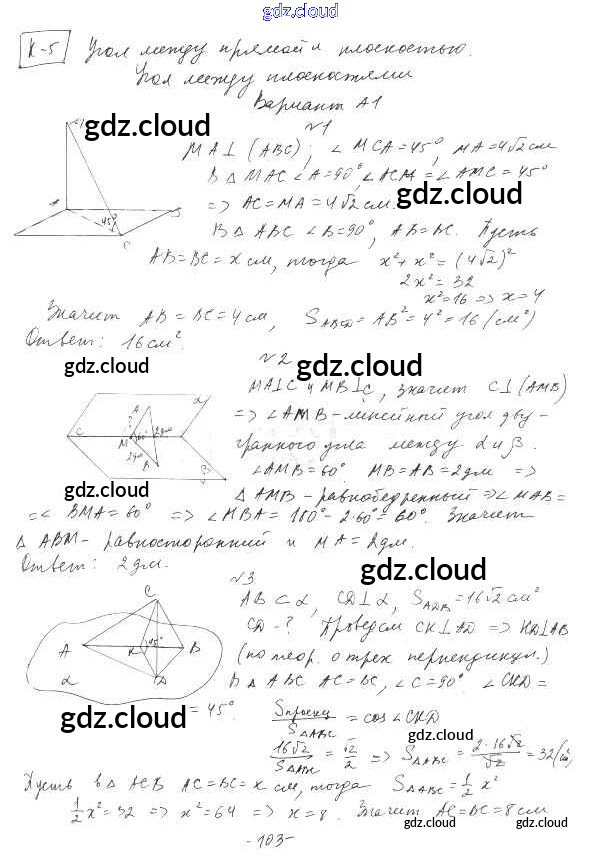 gdz.cloud
К-5 Угол между прямой и плоскостью.
Угол между плоскостями
Вариант А1
№1
gdz.cloud
MA⊥(ABC); ∠MCA=45°, MA=4√2 см
В △ MAC ∠A=90°, ∠ACM=∠AMC=45°
gdz.cloud
=> AC=MA=4√2 см.
45°
В △ ABC ∠B=90°, AB=BC. Пусть
AB=BC=x см, тогда x²+x²=(4√2)²
2x²=32
x²=16 => x=4
Значит AB=BC=4 см, S ABCD=AB²=4²=16 (см²)
Ответ: 16 см².
№2
gdz.cloud
gdz.cloud
MA⊥C и MB⊥C, значит C⊥(AMB)
=> ∠AMB - линейный угол дву-
гранного угла между α и β.
∠AMB=60° MB=AB=2дм =>
α A ? 2дм C M 60° 2дм B β
gdz.cloud
△ AMB - равнобедренный => ∠MAB=
=∠ BMA=60° => ∠MBA=180°-2·60°=60°. Значит
△ ABM - равносторонний и MA=2дм.
Ответ: 2дм.
gdz.cloud
№3
AB⊂α, CD⊥α, S ADB=16√2 см²
CD-? Проведем CK⊥AD => KD⊥AB
(по теор. о трех перпендикул.)
В △ ABC AC=BC, ∠C=90° ∠CKD=
C A K 45° B α D
gdz.cloud
=45°. S проекц / S△ABC = cos∠CKD
gdz.cloud
16√2 / S△ABC = √2/2 => S△ABC = 2·16√2 / √2 = 32(см²)
Пусть в △ ACB AC=BC=x см, тогда S△ABC=½x²
½x²=32 => x²=64 => x=8. Значит AC=BC=8 см
gdz.cloud
gdz.cloud
-103-